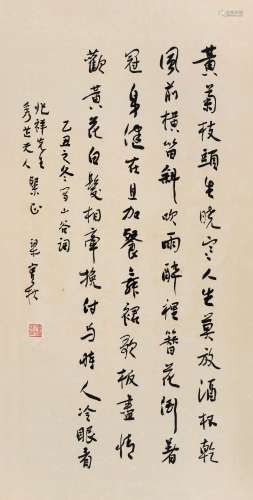 黃菊枝頭生曉寒人生莫放酒杯乾
風前橫笛斜吹雨醉裡簪花倒著
冠身健在且加餐舞裙歌板盡情
歡黃花白髮相牽挽付與時人冷眼看
乙丑之冬寫山谷詞
兆祥先生
秀芷夫人 粲正 梁實秋